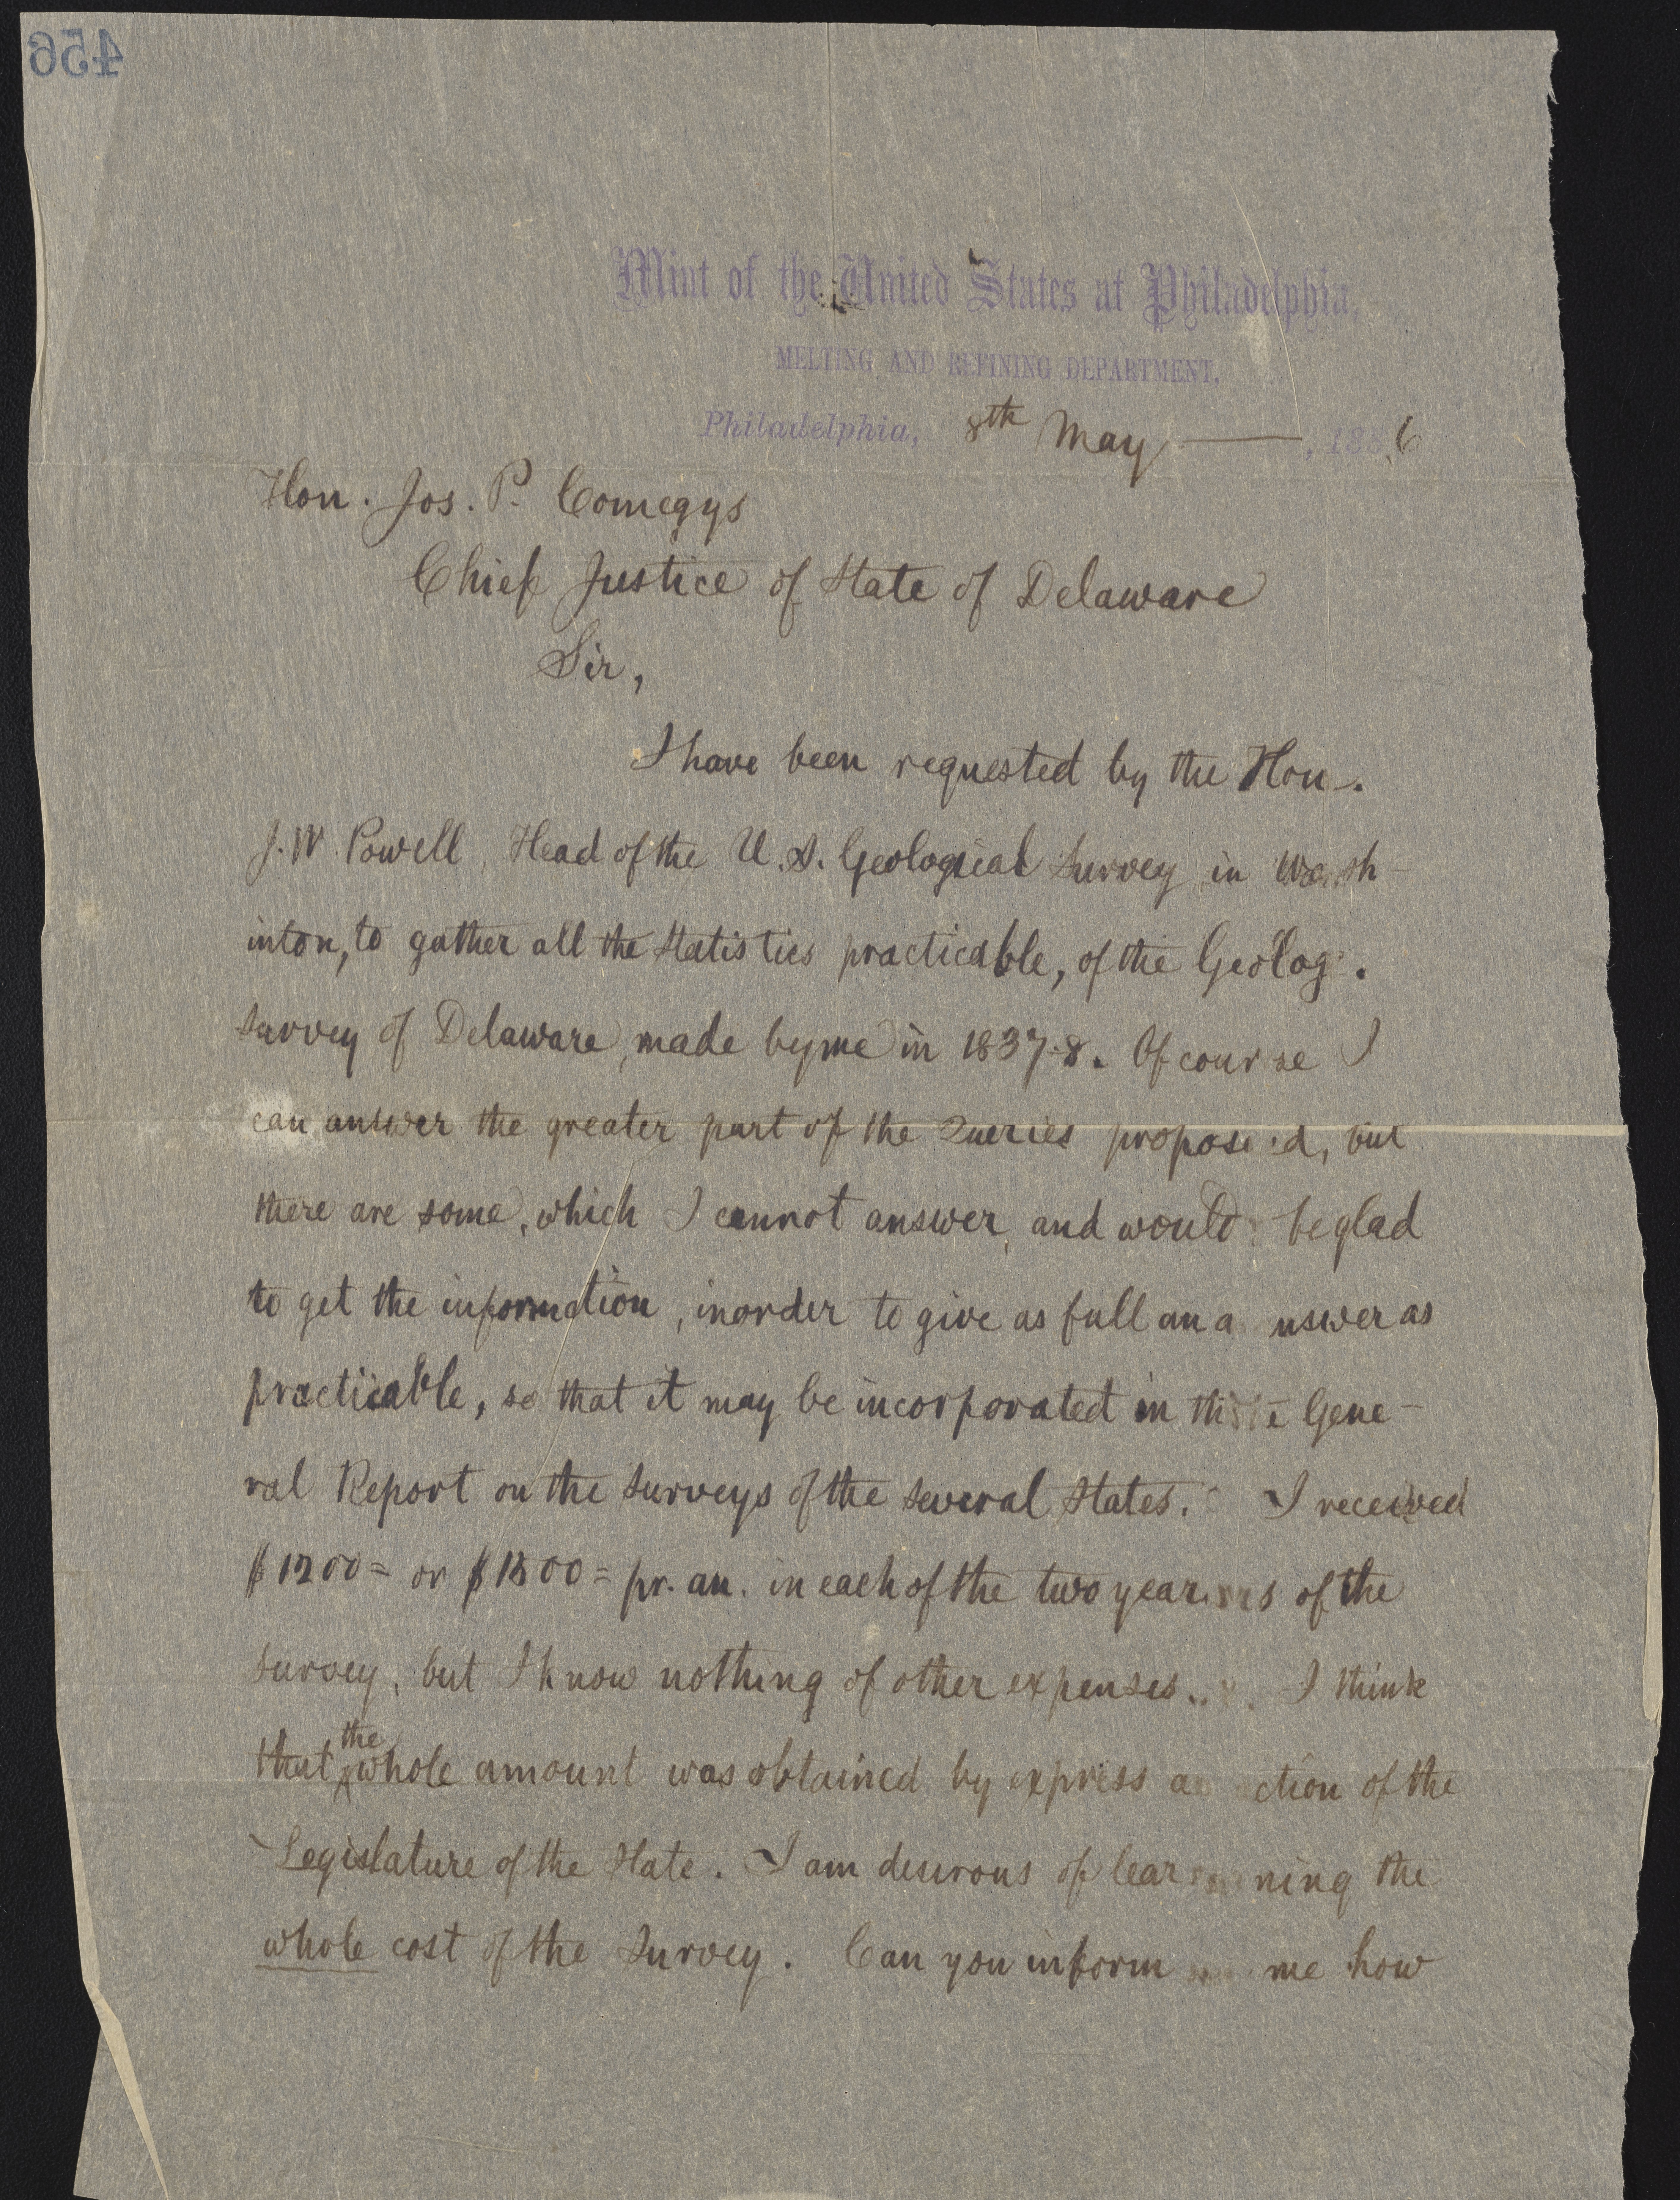 456
Mint of the United States at Philadelphia,
MELTING AND REFINING DEPARTMENT,
Philadelphia, 8th May ——, 1886
Hon. Jos. P. Comegys
Chief Justice of State of Delaware
Sir,
I have been requested by the Hon.
J. W. Powell, Head of the U. S. Geological Survey in Wash-
inton, to gather all the statistics practicable, of the Geolog.
survey of Delaware, made by me in 1837-8. Of course I
can answer the greater part of the Queries proposed, but
there are some, which I cannot answer, and would be glad
to get the information, in order to give as full an answer as
practicable, so that it may be incorporated in the Gene-
ral Report on the surveys of the several States. I received
$1200= or $1500= pr. an. in each of the two years of the
survey, but I know nothing of other expenses. I think
that the whole amount was obtained by express action of the
Legislature of the State. I am desirous of learning the
whole cost of the Survey. Can you inform me how